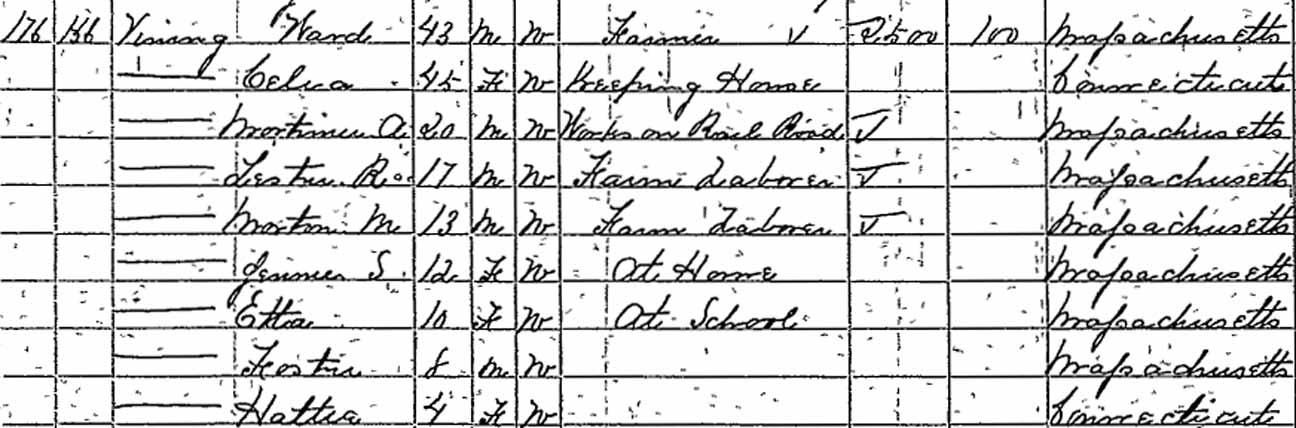 176 156 Vining Ward 43 M W Farmer 2500 100 Massachusetts
Celia 45 F W Keeping House Connecticut
Mortimer A 20 M W Works on Rail Road Massachusetts
Lester R 17 M W Farm Laborer Massachusetts
Morton M 13 M W Farm Laborer Massachusetts
Jennie S. 12 F W At Home Massachusetts
Etta 10 F W At School Massachusetts
Foster 8 M W Massachusetts
Hattie 4 F W Connecticut